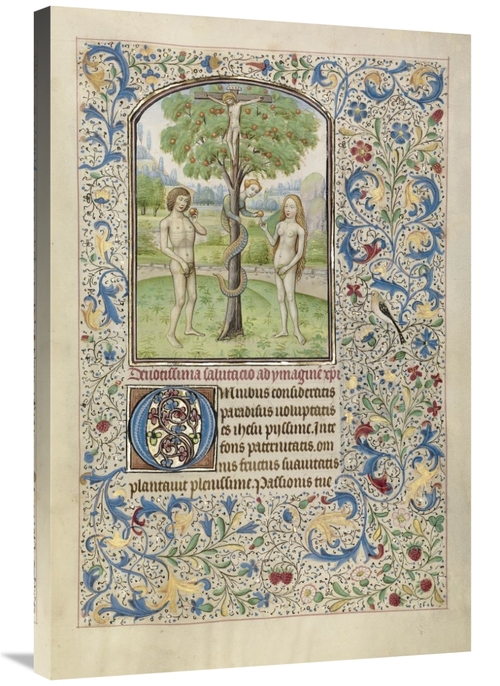 Deuotissima salutacio ad ymaginē xp̄i
Omnibus consideratis
paradisus uoluptatis
es ihesu pyssime. Inte
fons paternitatis. om
nis fructus suauitatis
plantauit plenissime. Passionis tue